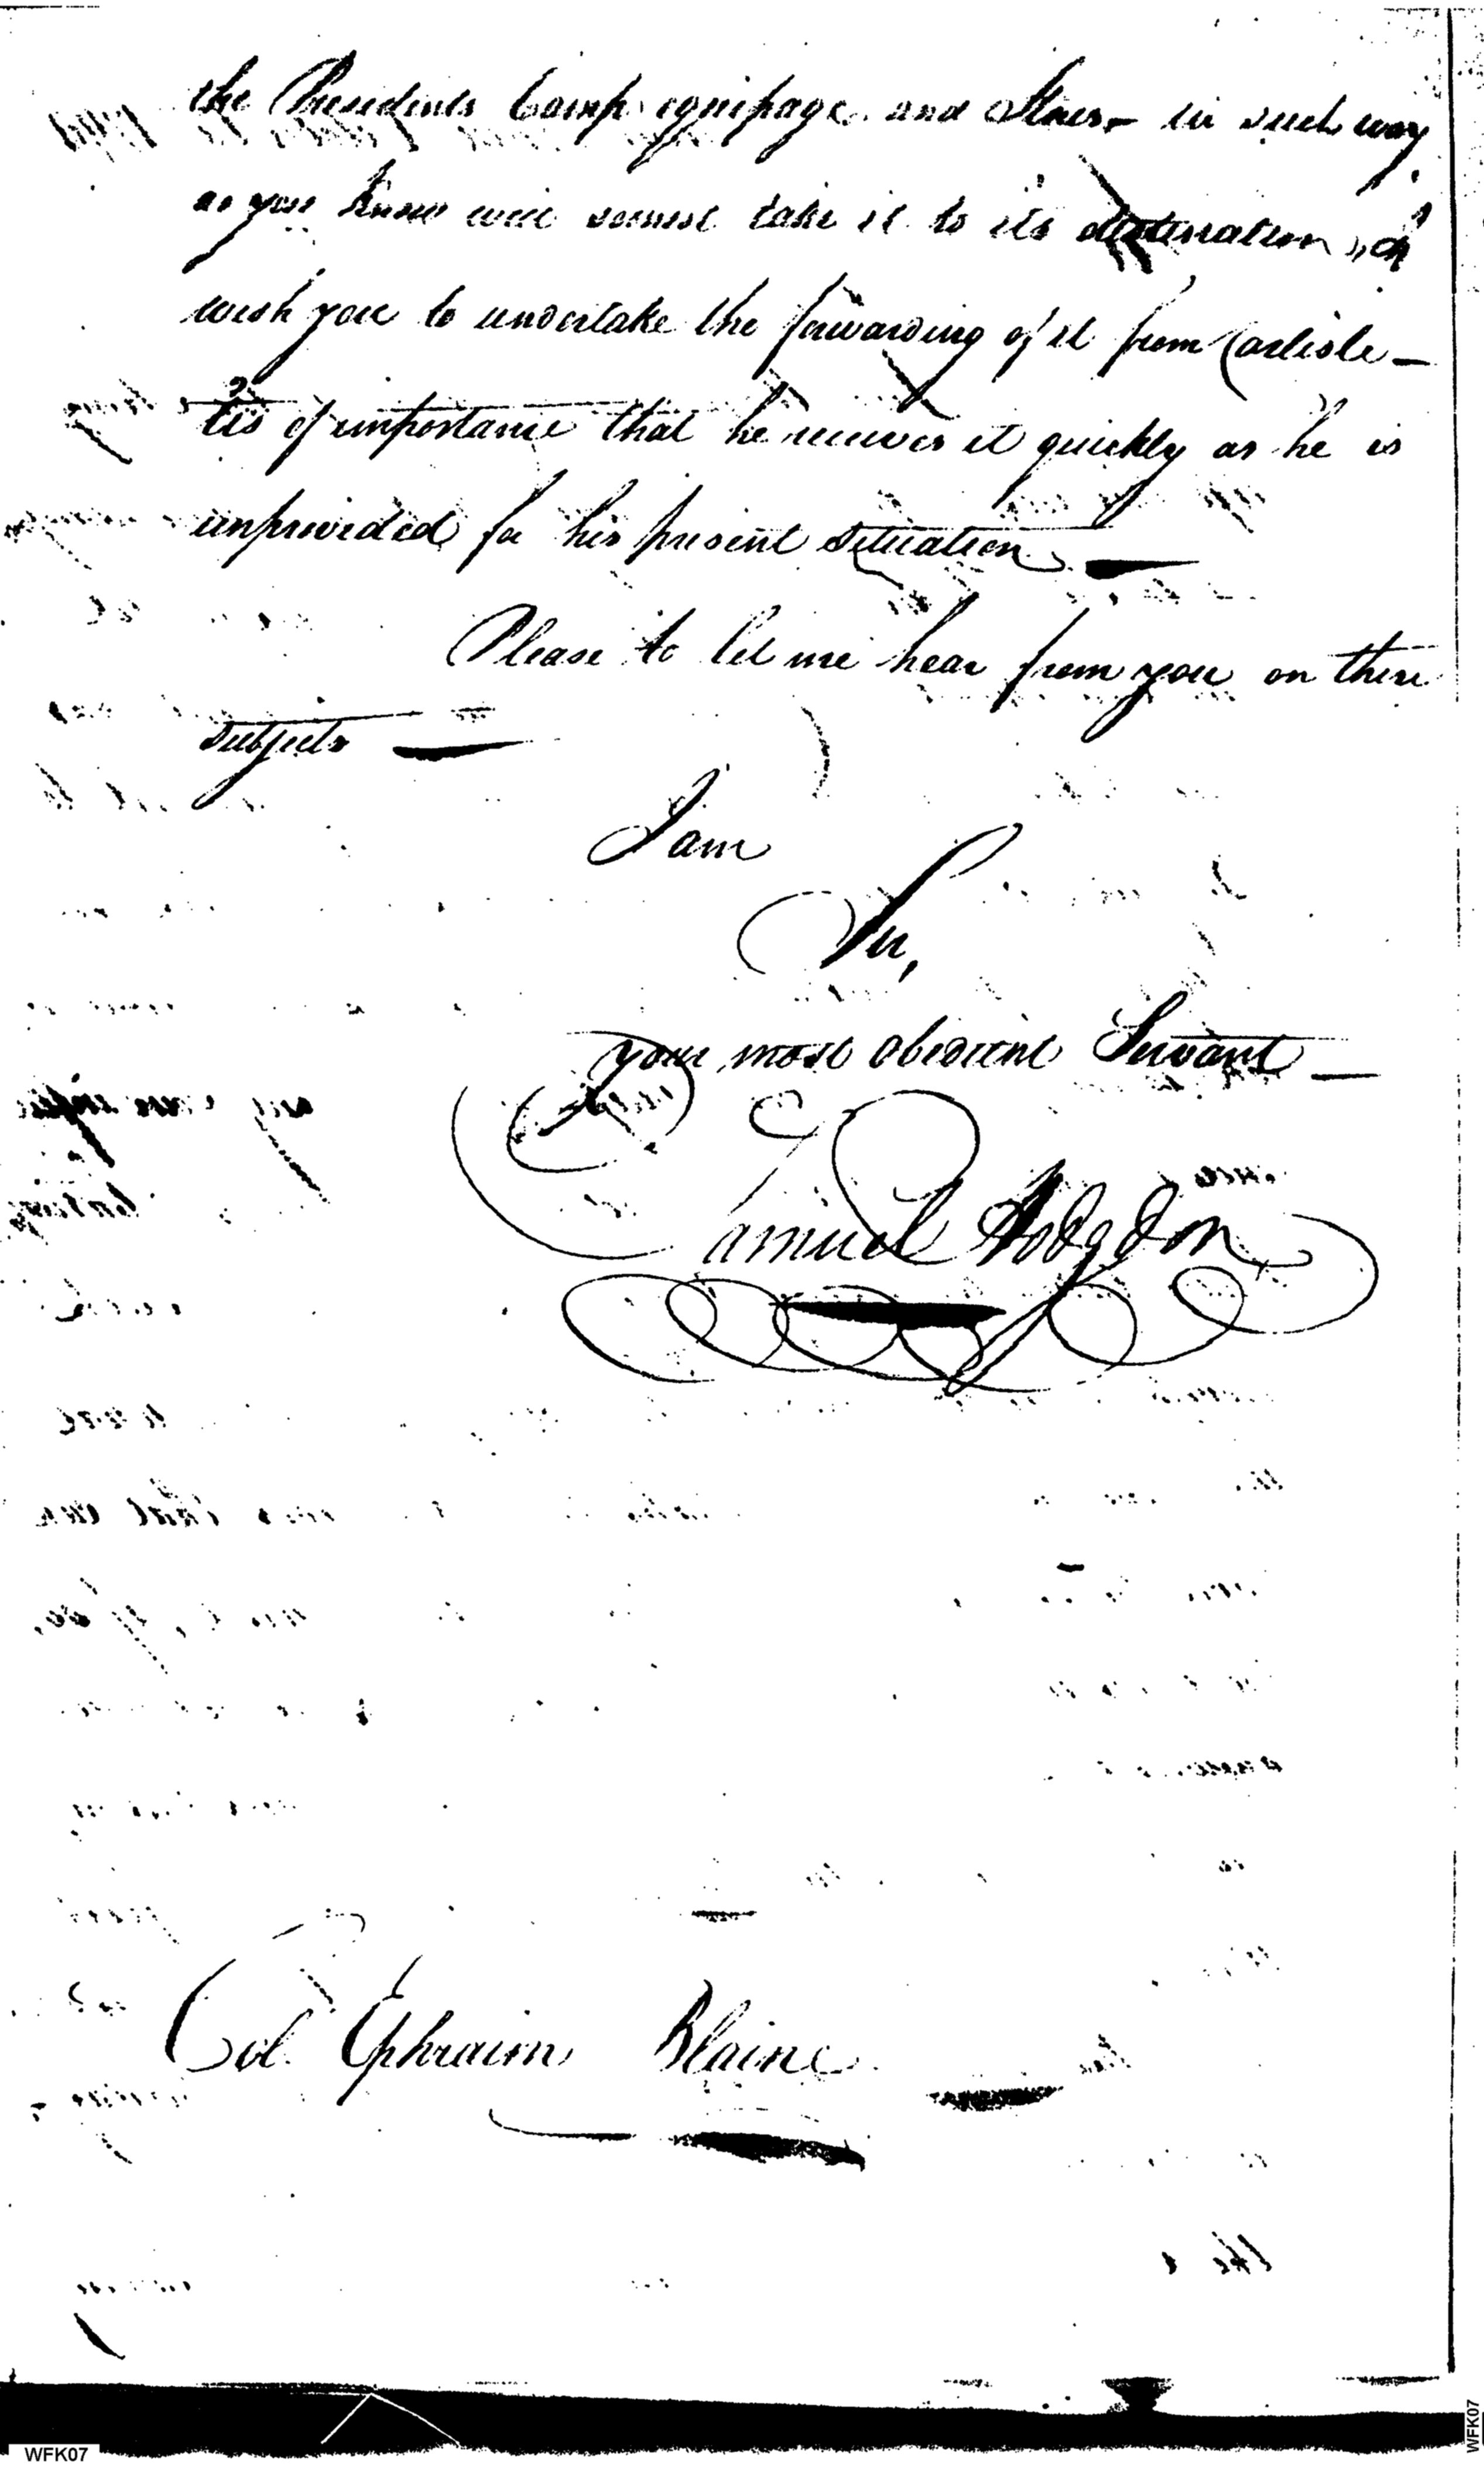 the Presidents Camp equipage and Stores – in such way
as you know will soonest take it to its destination, I
wish you to undertake the forwarding of it from Carlisle –
tis of importance that he receives it quickly as he is
unprovided for his present situation —
Please to let me hear from you on these
subjects —
I am
Sir,
your most obedient Servant —
Samuel Hodgdon
Col. Ephraim Blaine
WFK07
WFK07